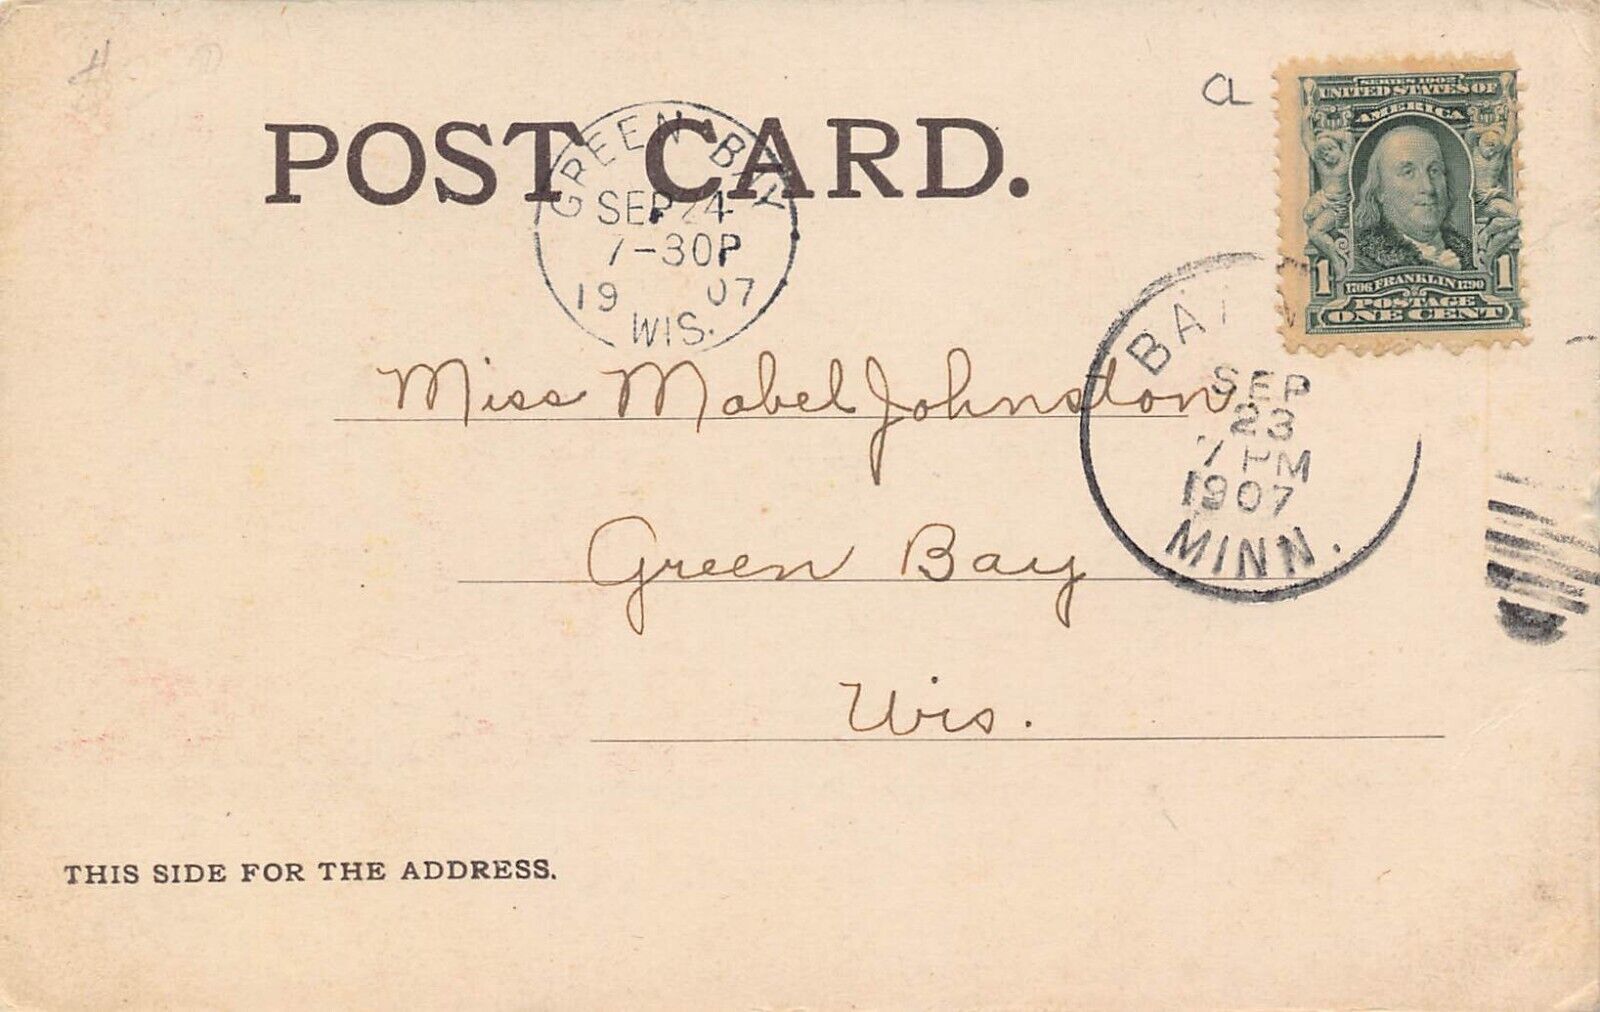 CL
SERIES 1902
UNITED STATES OF
AMERICA
1 1706 FRANKLIN 1790 1
POSTAGE
ONE CENT
POST CARD.
GREEN BAY
SEP 24
7-30P
19 07
WIS.
SEP
23
7 PM
1907
MINN.
Miss Mabel Johnston
Green Bay
Wis.
THIS SIDE FOR THE ADDRESS.